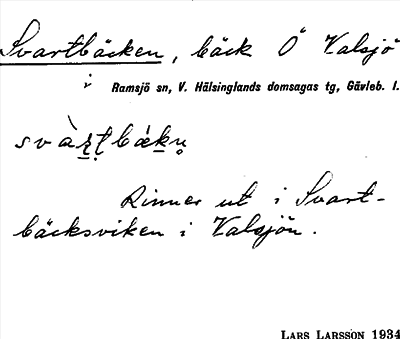 Svartbäcken, bäck Ö Valsjö
i Ramsjö sn, V. Hälsinglands domsagas tg, Gävleb. l.
Rinner ut i Svart-
bäcksviken i Valsjön.
LARS LARSSON 1934